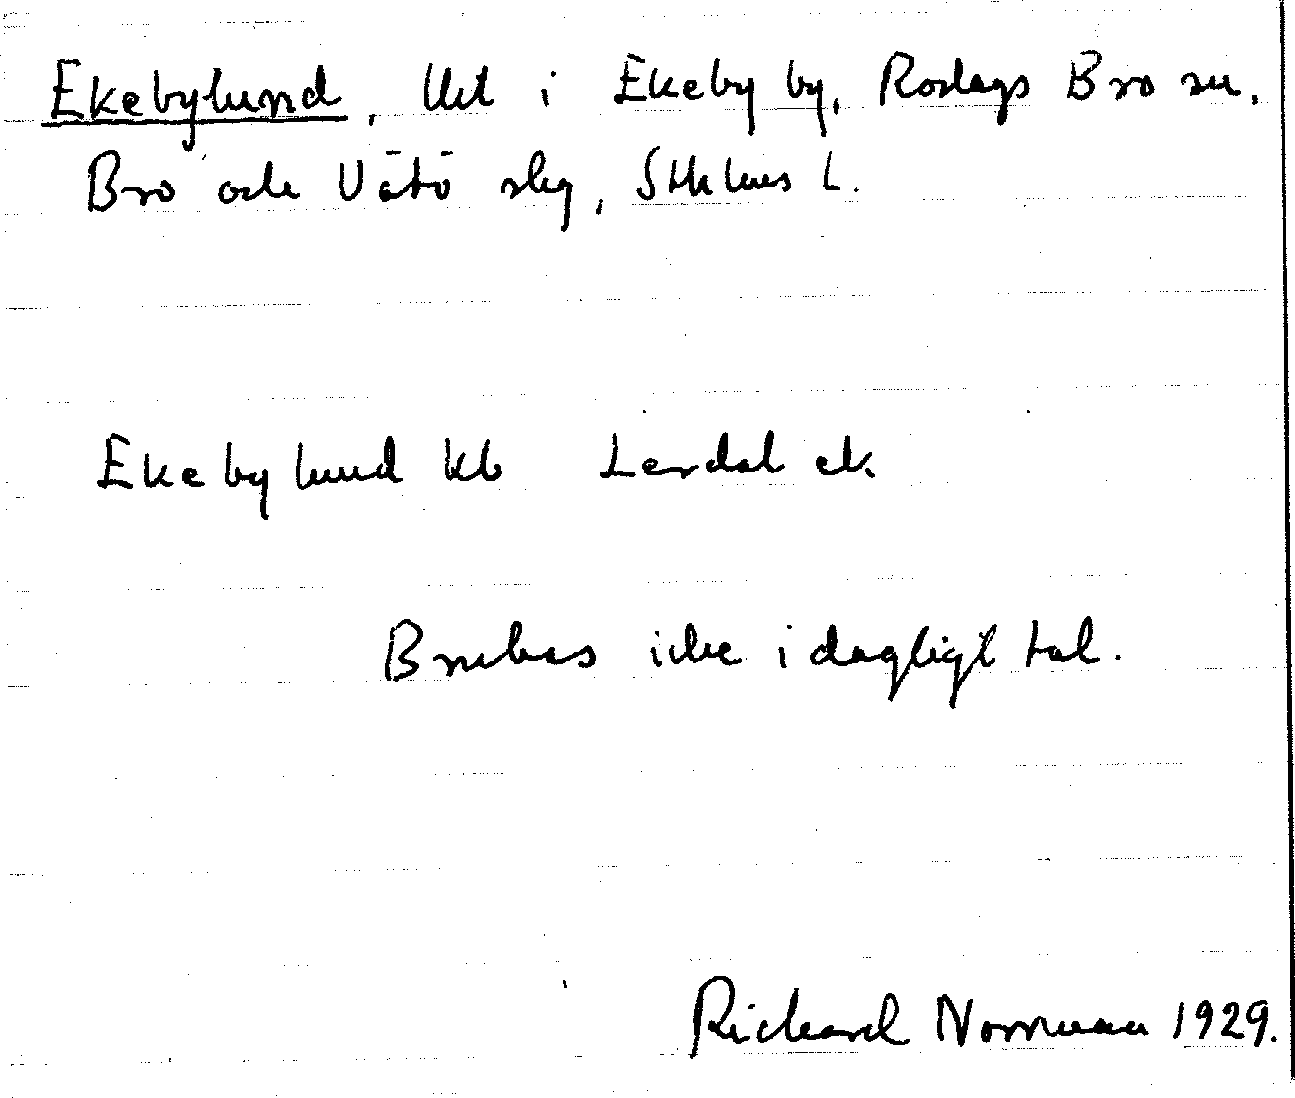 Ekebylund, lht i Ekeby by, Roslags Bro sn.
Bro och Vätö slg, Sthlms L.
Ekebylund kb Lerdal ek.
Brukas icke i dagligt tal.
Richard Norrman 1929.